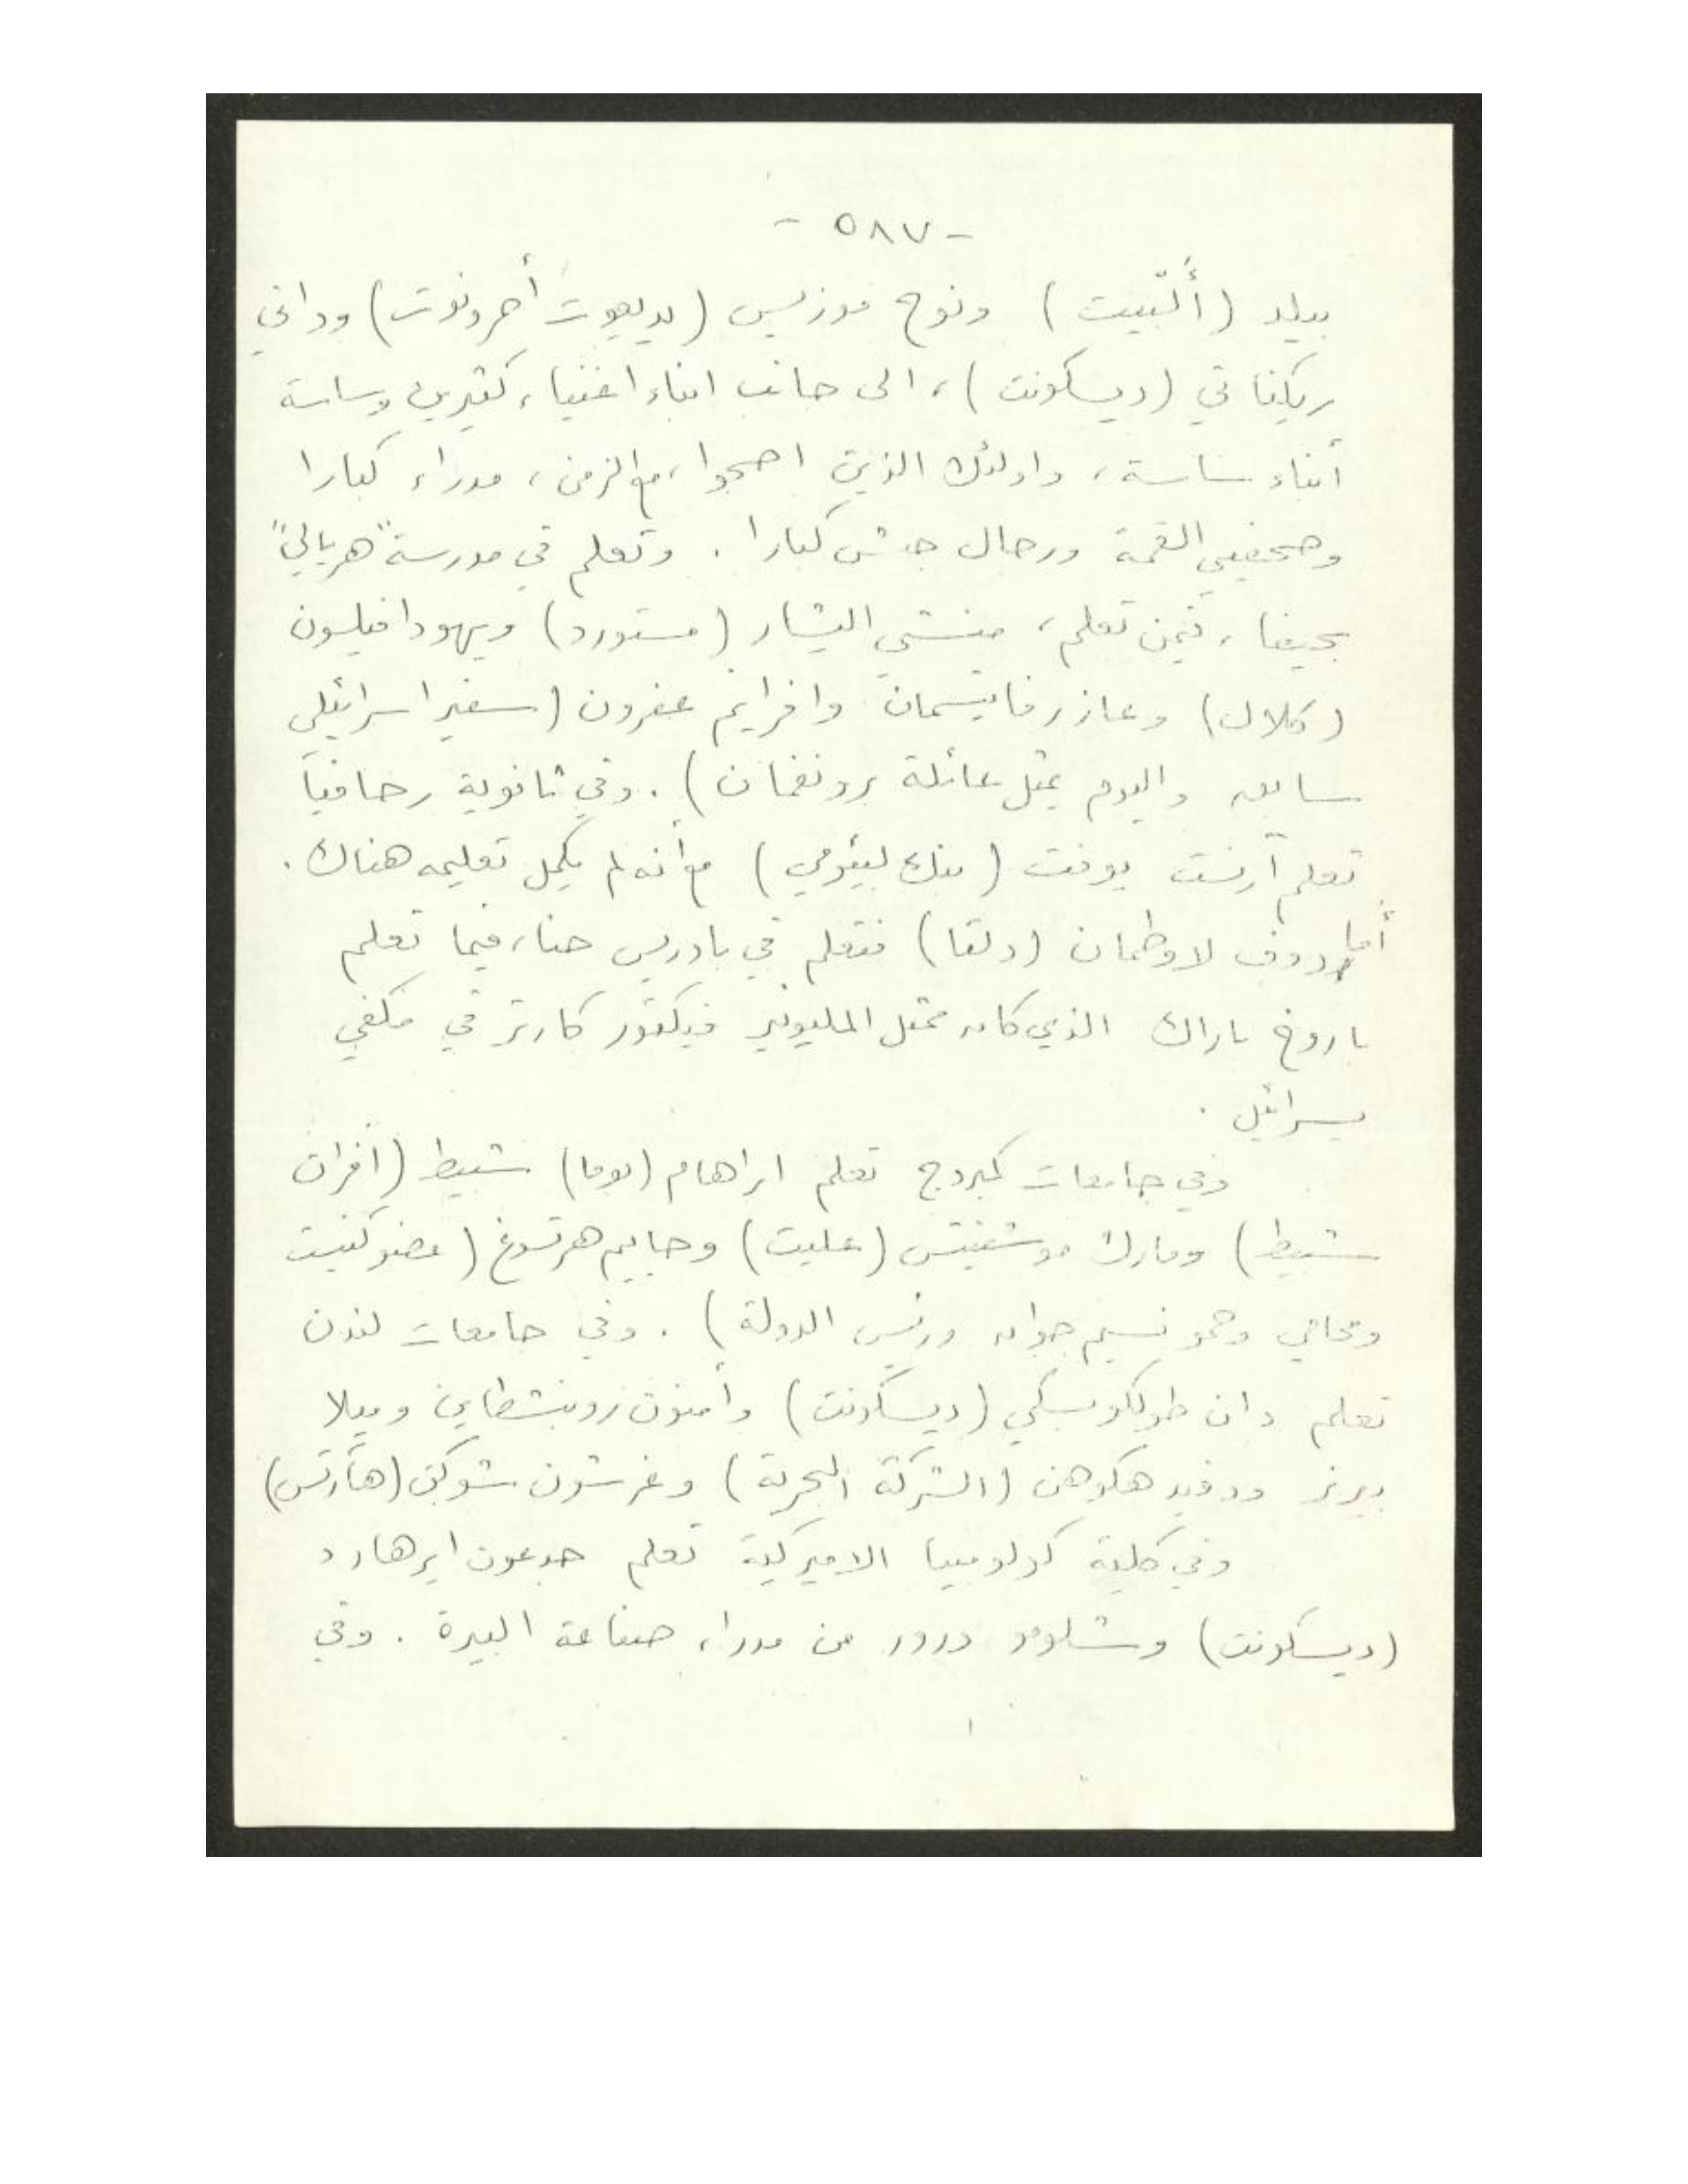 - ٥٨٧ -
بيلد (ألبيت) ونوح موزيس (يديعوت أحرونوت) وداني
ريكناتي (ديسكونت)، الى جانب ابناء اغنياء كثيرين وساسة
أبناء ساسة، واولئك الذين اصبحوا، مع الزمن، مدراء كبارا
وصحفيي القمة ورجال جيش كبارا. وتعلم في مدرسة "هريالي"
بحيفا، فيمن تعلم، منشي اليشار (مستورد) ويهودا فيلسون
(كلال) وعازر فايتسمان وافرايم عفرون (سفير اسرائيلي
سابق واليوم يمثل عائلة برونفمان). وفي ثانوية رحافيا
تعلم آرنست يوفت (بنك ليئومي) مع أنه لم يكمل تعليمه هناك.
أما دوف لاوطمان (دلتا) فتعلم في بادريس حنا، فيما تعلم
باروخ باراك الذي كان ممثل المليونير فيكتور كارتر في مكفي
يسرائيل.
وفي جامعات كمبردج تعلم ابراهام (بوما) شبيط (أفران
شبيط) ومارك موشفيتس (عليت) وحاييم هرتسوغ (عضو كنيست
ومحامي وحمو نسيم جوان ورئيس الدولة). وفي جامعات لندن
تعلم دان طولكوبسكي (ديسكونت) وأمنون روبنشطاين وميلا
بيرنر ودفيد هكوهن (الشركة البحرية) وغرشون شوكن (هآرتس)
وفي كلية كولومبيا الاميركية تعلم جدعون ايرهارد
(ديسكونت) وشلومو درور من مدراء صناعة البيرة. وفي